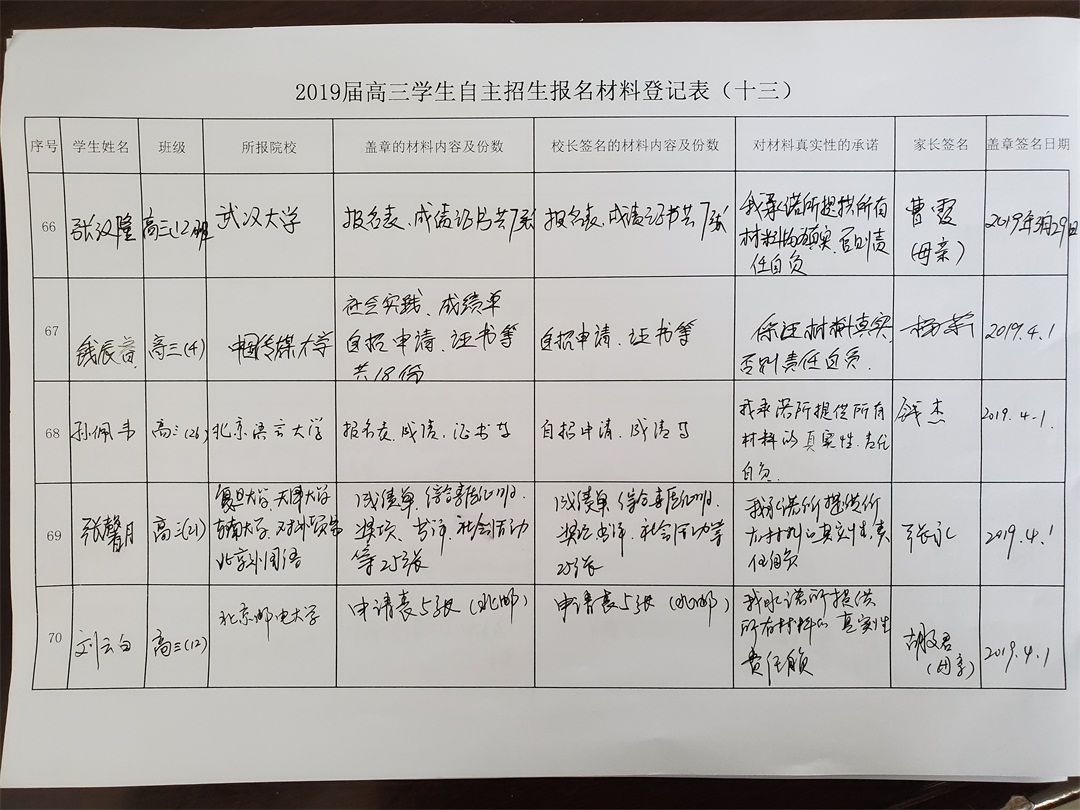 2019届高三学生自主招生报名材料登记表（十三）
序号 学生姓名 班级 所报院校 盖章的材料内容及份数 校长签名的材料内容及份数 对材料真实性的承诺 家长签名 盖章签名日期
66 张汉隆 高三(12班 武汉大学 报名表、成绩证书共7张 报名表、成绩证书共7张 我承诺所提供所有
材料均真实，否则责
任自负 曹霞
(母亲) 2019年3月29日
67 钱辰 高三(4) 中国传媒大学 社会实践、成绩单
自招申请、证书等
共18份 自招申请、证书等 保证材料真实
否则责任自负. 杨 2019.4.1
68 孙佩韦 高三(26) 北京语言大学 报名表,成绩,证书等 自招申请,成绩等 我承诺所提供所有
材料的真实性,责任
自负 钱杰 2019.4.1.
69 张馨月 高三(21) 复旦大学,天津大学
东南大学,对外贸易
北京外国语 成绩单,综合
奖项、书评,社会活动
等25张 成绩单,综合
奖项,书评,社会活动等
25张 我承诺所提供所
有材料的真实性,责
任自负 张 2019.4.1
70 刘云白 高三(12) 北京邮电大学 申请表5张(北邮) 申请表5张(北邮) 我承诺所提供
所有材料的真实性
责任自负 胡君
(母亲) 2019.4.1